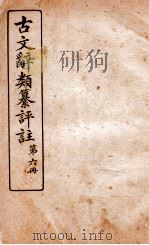 古文辭類纂評註
第六冊
mtoou.info